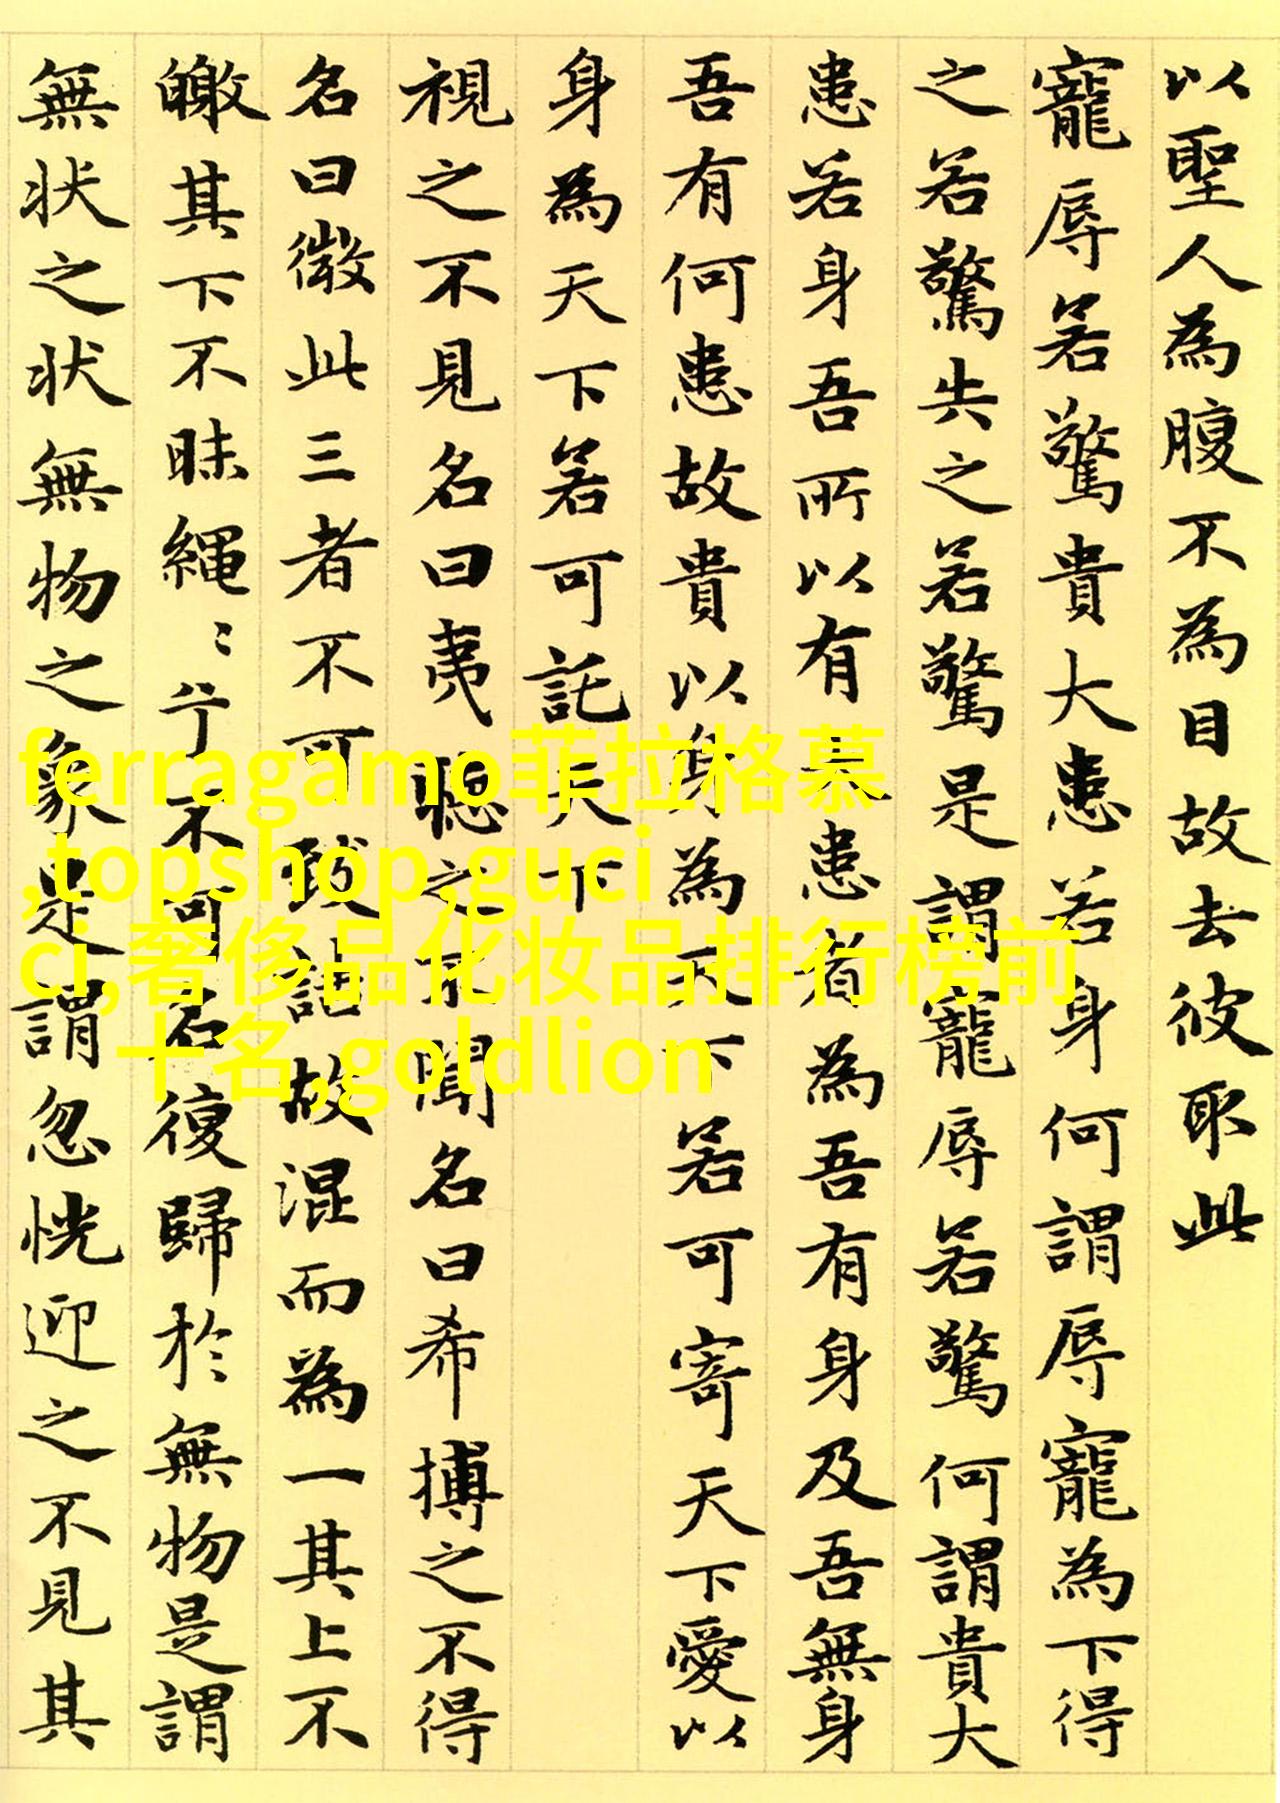 以聖人為腹不為目故去彼取此
寵辱若驚貴大患若身何謂辱寵為下得
之若驚失之若驚是謂寵辱若驚何謂貴大
患若身吾所以有大患者為吾有身及吾無身
吾有何患故貴以身為天下若可寄天下愛以
身為天下若可託天下
視之不見名曰夷聽之不聞名曰希搏之不得
名曰微此三者不可致詰故混而為一其上不
皦其下不昧繩〻兮不可名復歸於無物是謂
無状之状無物之象是謂忽恍迎之不見其
ferragamo菲拉格慕
,topshop,guci
ci,奢侈品化妆品排行榜前
十名,goldlion